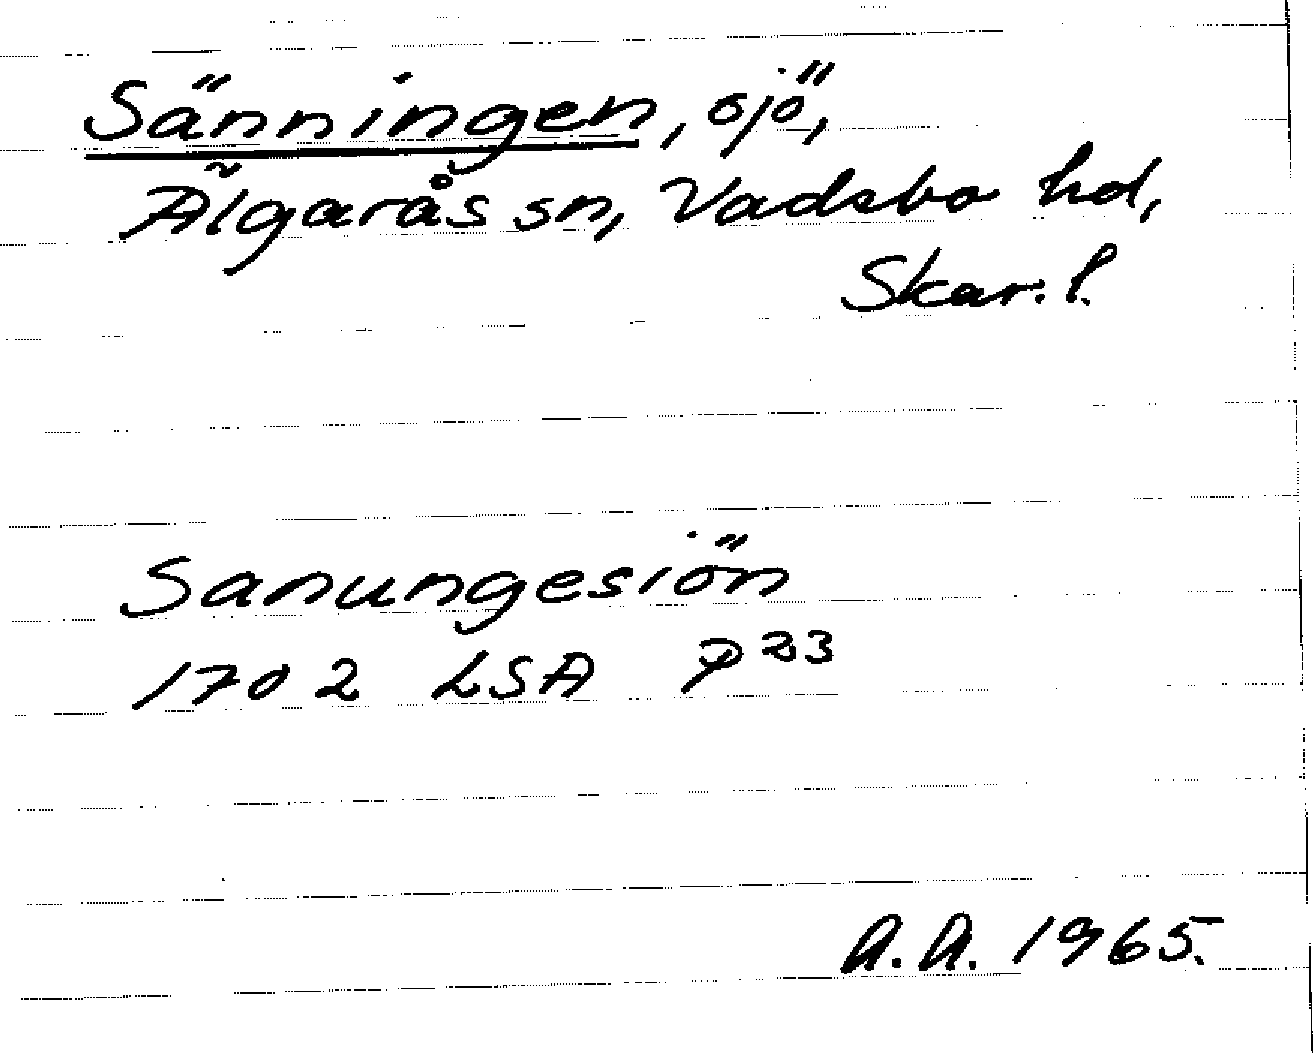 Sänningen, sjö,
Älgarås sn, Vadsbo hd,
Skar. l.
Sanungesiön
1702 LSA P 23
A.A. 1965.